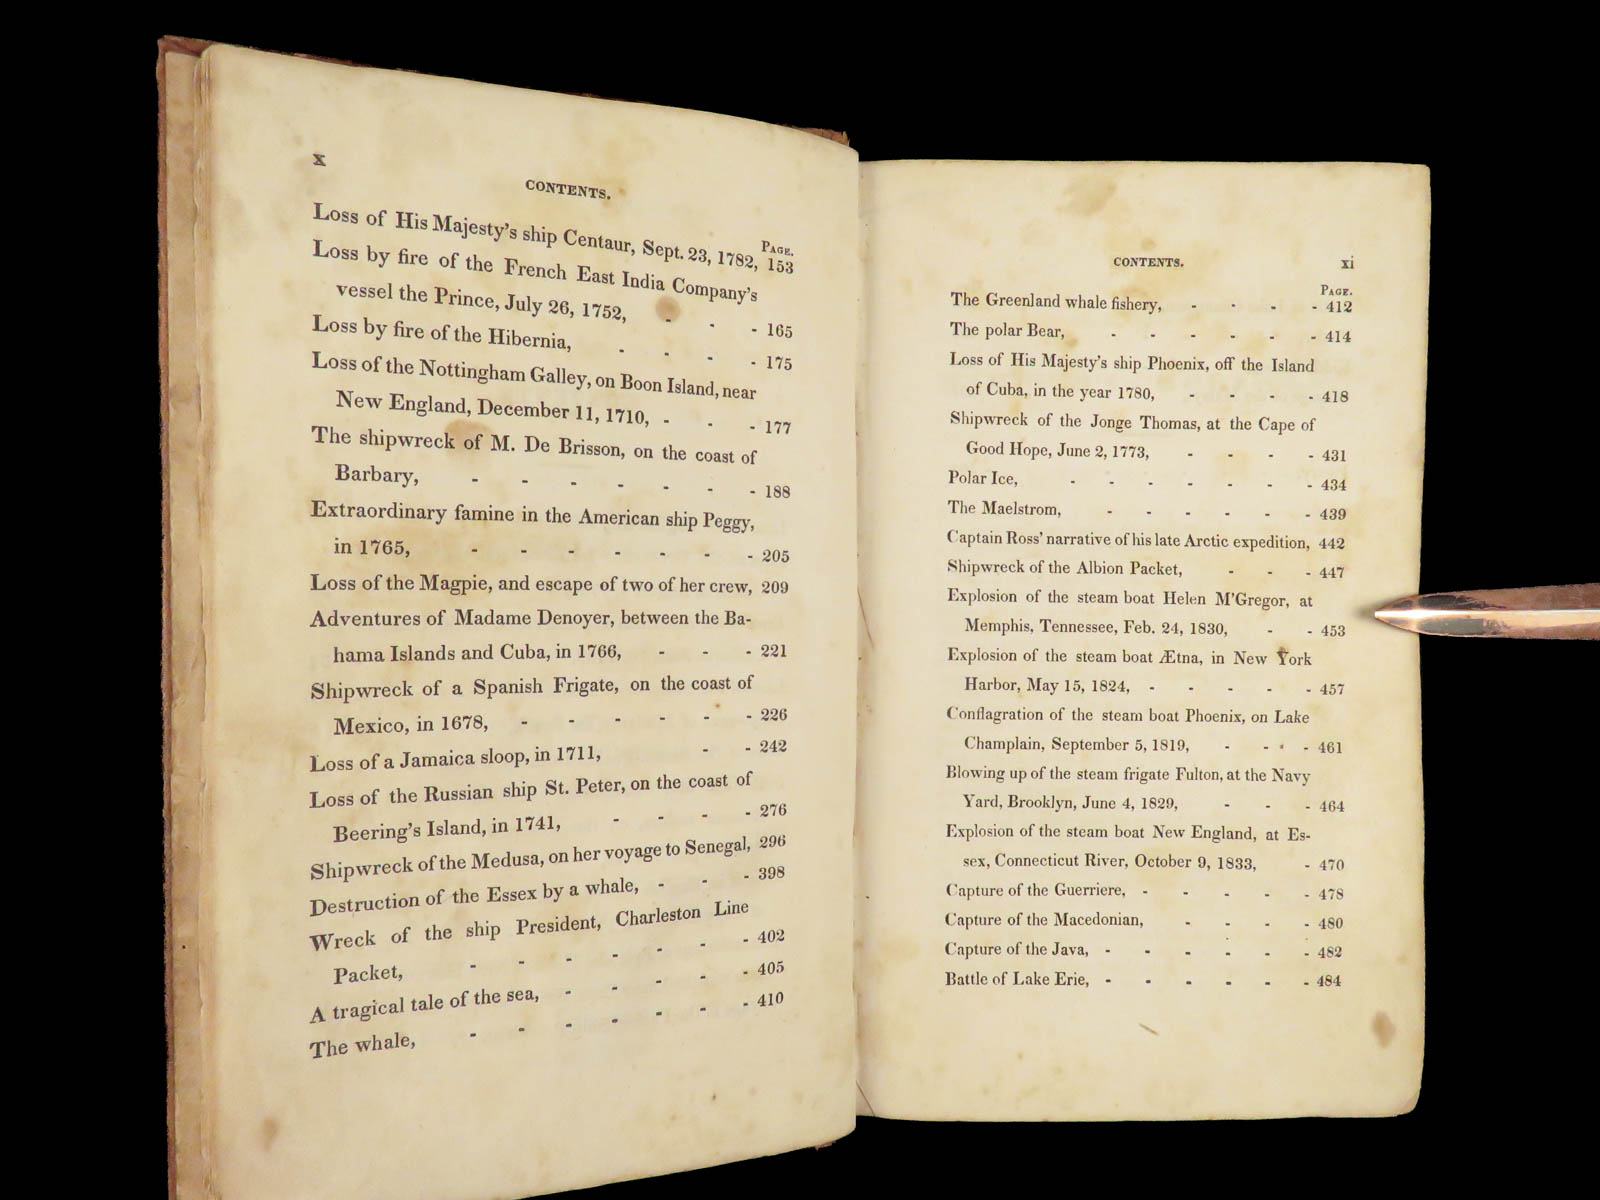 x
CONTENTS.
PAGE.
Loss of His Majesty's ship Centaur, Sept. 23, 1782, 153
Loss by fire of the French East India Company's
vessel the Prince, July 26, 1752, - - - 165
Loss by fire of the Hibernia, - - - - 175
Loss of the Nottingham Galley, on Boon Island, near
New England, December 11, 1710, - - - 177
The shipwreck of M. De Brisson, on the coast of
Barbary, - - - - - - - 188
Extraordinary famine in the American ship Peggy,
in 1765, - - - - - - - 205
Loss of the Magpie, and escape of two of her crew, 209
Adventures of Madame Denoyer, between the Ba-
hama Islands and Cuba, in 1766, - - - 221
Shipwreck of a Spanish Frigate, on the coast of
Mexico, in 1678, - - - - - - 226
Loss of a Jamaica sloop, in 1711, - - 242
Loss of the Russian ship St. Peter, on the coast of
Beering's Island, in 1741, - - - - 276
Shipwreck of the Medusa, on her voyage to Senegal, 296
Destruction of the Essex by a whale, - - - 398
Wreck of the ship President, Charleston Line
Packet, - - - - - - - 402
A tragical tale of the sea, - - - - - 405
The whale, - - - - - - - 410
CONTENTS. xi
PAGE.
The Greenland whale fishery, - - - - 412
The polar Bear, - - - - - - 414
Loss of His Majesty's ship Phoenix, off the Island
of Cuba, in the year 1780, - - - - 418
Shipwreck of the Jonge Thomas, at the Cape of
Good Hope, June 2, 1773, - - - - 431
Polar Ice, - - - - - - - 434
The Maelstrom, - - - - - - 439
Captain Ross' narrative of his late Arctic expedition, 442
Shipwreck of the Albion Packet, - - - 447
Explosion of the steam boat Helen M'Gregor, at
Memphis, Tennessee, Feb. 24, 1830, - - 453
Explosion of the steam boat Ætna, in New York
Harbor, May 15, 1824, - - - - - 457
Conflagration of the steam boat Phoenix, on Lake
Champlain, September 5, 1819, - - - - 461
Blowing up of the steam frigate Fulton, at the Navy
Yard, Brooklyn, June 4, 1829, - - - 464
Explosion of the steam boat New England, at Es-
sex, Connecticut River, October 9, 1833, - 470
Capture of the Guerriere, - - - - - 478
Capture of the Macedonian, - - - - 480
Capture of the Java, - - - - - - 482
Battle of Lake Erie, - - - - - - 484